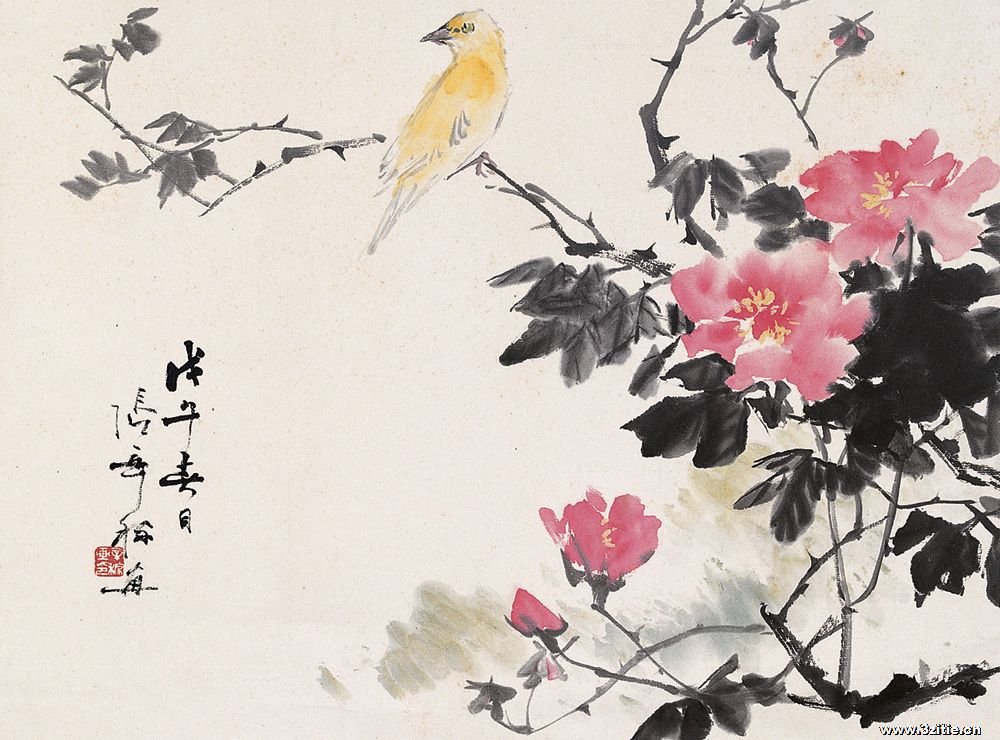 戊午春日
張辛稼畫
www.3zitie.cn